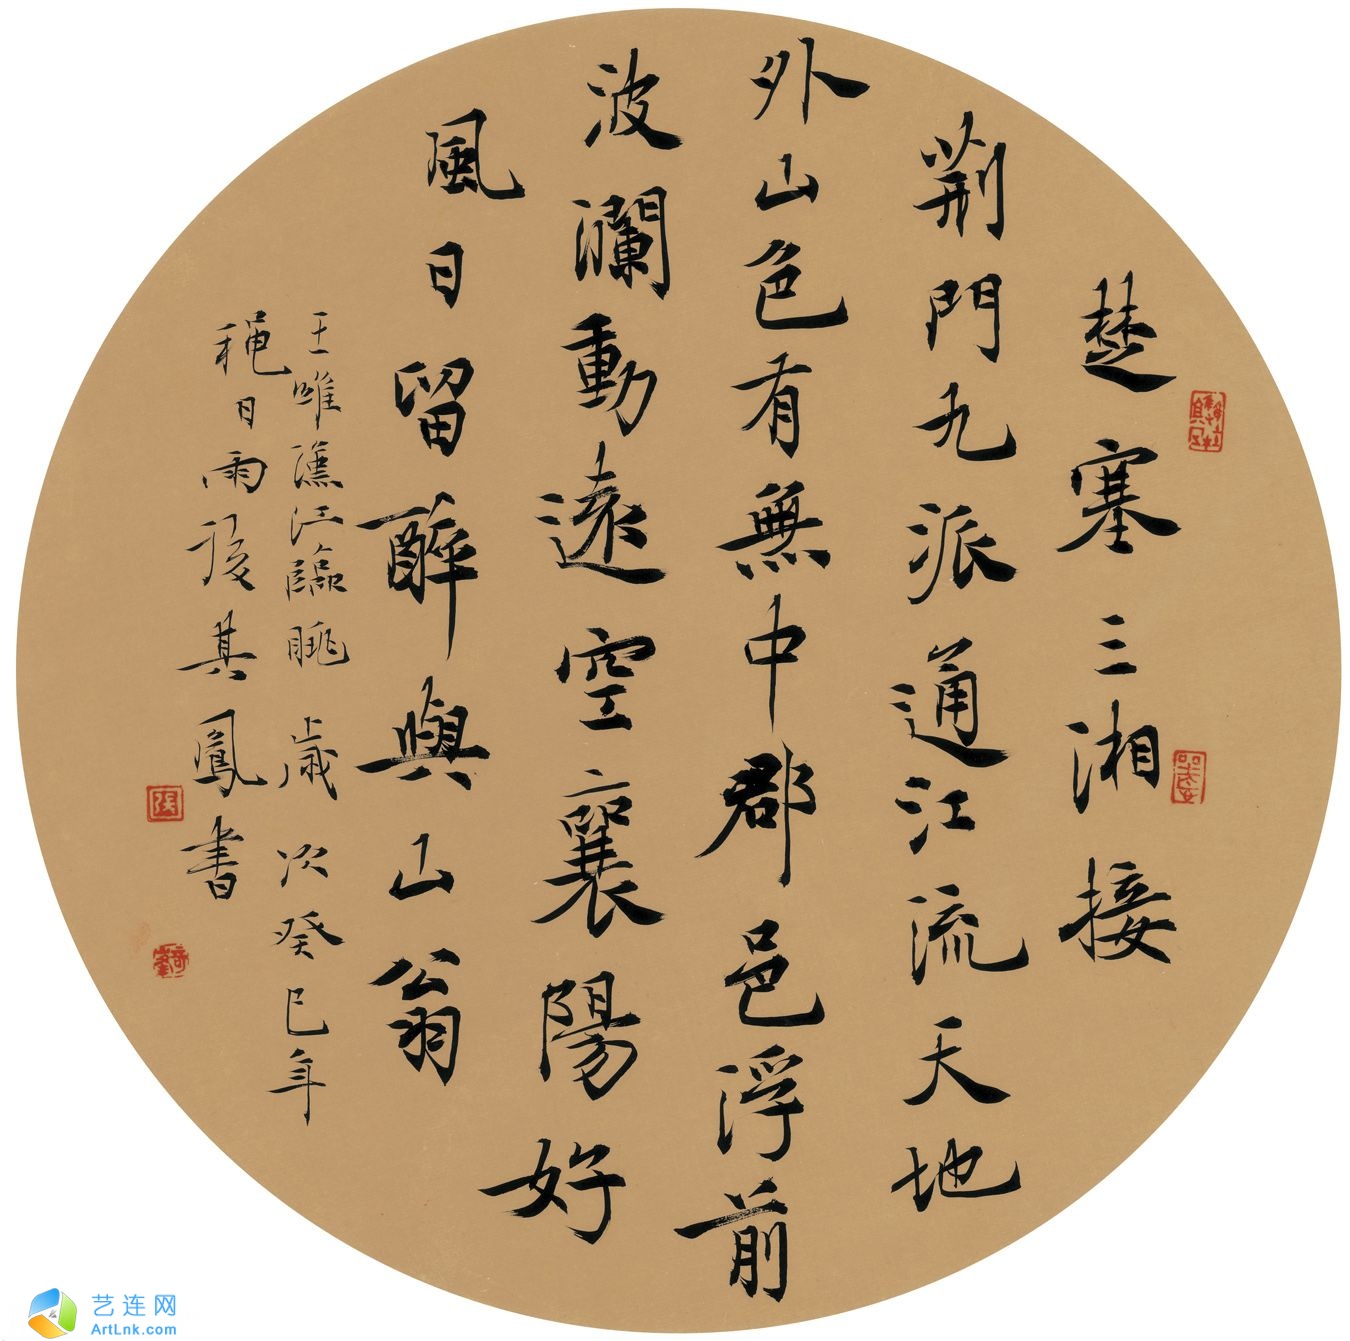 楚塞三湘接
荆門九派通江流天地
外山色有無中郡邑浮前
波瀾動遠空襄陽好
風日留醉與山翁
王唯漢江臨眺 歲次癸巳年
穐日雨後其鳳書
張
艺连网
ArtLnk.com